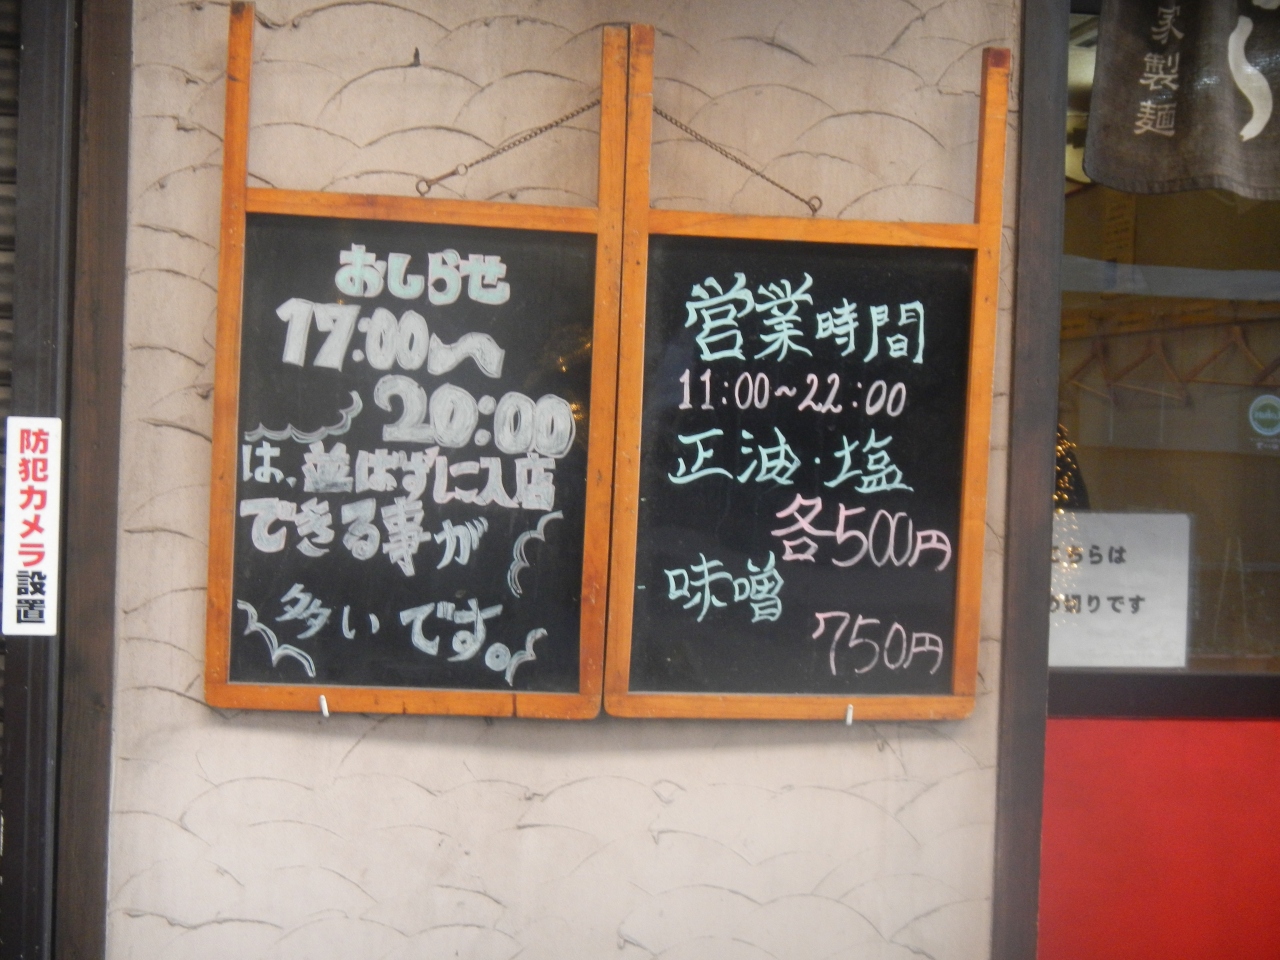 おしらせ
17:00〜
20:00
は、並ばずに入店
できる事が
多いです。
営業時間
11:00~22:00
正油・塩
各500円
味噌
750円
防犯カメラ設置
家製麺
ちらは
切りです